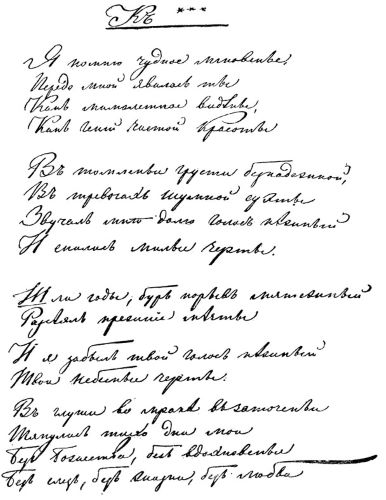 Къ ***
Я помню чудное мгновенье:
Передо мной явилась ты
Какъ мимолетное видѣнье,
Какъ геній чистой красоты
Въ томленьи грусти безнадежной,
Въ тревогахъ шумной суеты
Звучалъ мнѣ долго голосъ нѣжный
И снились милые черты.
Шли годы, бурь порывъ мятежный
Разсѣялъ прежніе мечты
И я забылъ твой голосъ нѣжный
Твои небесные черты.
Въ глуши во мракѣ заточенья
Тянулись тихо дни мои
Безъ божества, безъ вдохновенья
Безъ слезъ, безъ жизни, безъ любви